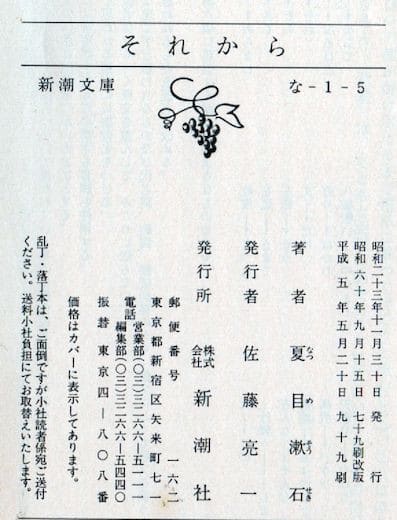 それから
新潮文庫
な-1-5
昭和二十三年十一月三十日 発行
昭和六十年九月十五日 七十九刷改版
平成五年五月二十日 九十九刷
著者 夏目漱石
なつ め そう せき
発行者 佐藤亮一
発行所 株式会社 新潮社
郵便番号 一六二
東京都新宿区矢来町七一
電話 営業部(〇三)三二六六―五一一一
編集部(〇三)三二六六―五四四〇
振替 東京四―八〇八番
価格はカバーに表示してあります。
乱丁・落丁本は、ご面倒ですが小社読者係宛ご送付
ください。送料小社負担にてお取替えいたします。